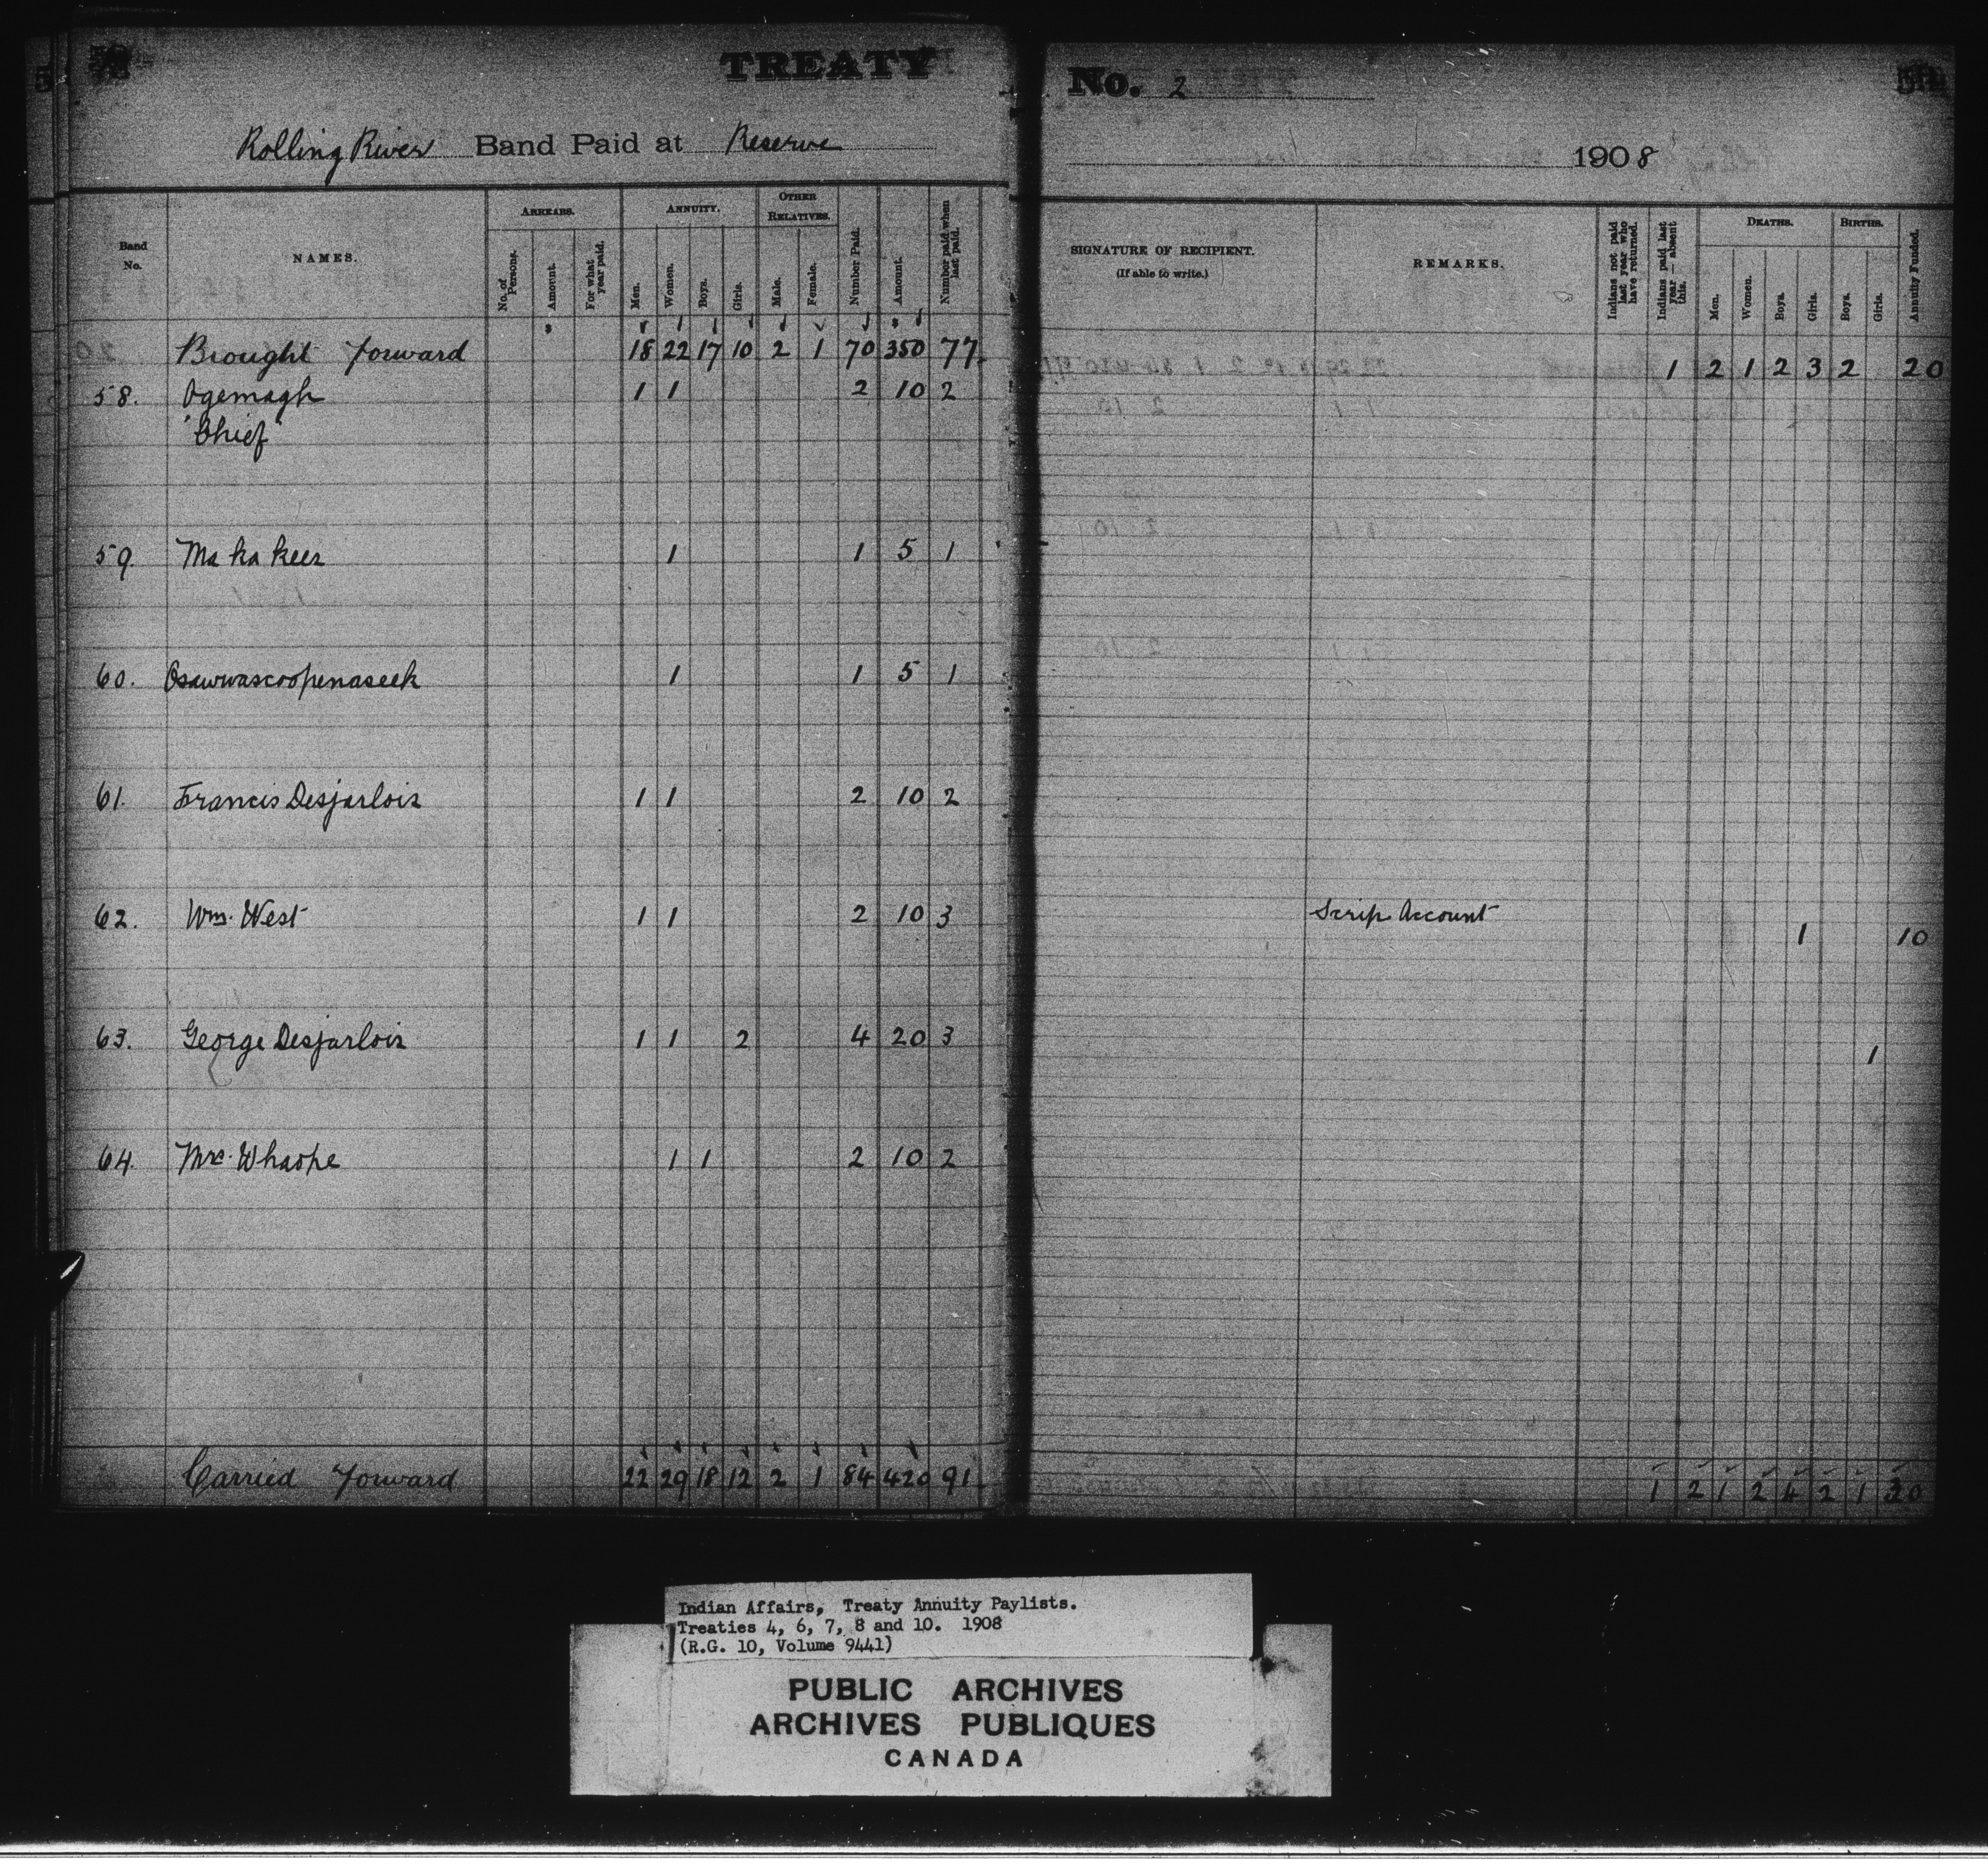 TREATY No. 2
Rolling River Band Paid at Reserve 1908
Band No.
NAMES.
ARREARS.
No. of Persons.
Amount.
For what year paid.
ANNUITY.
Men.
Women.
Boys.
Girls.
OTHER RELATIVES.
Male.
Female.
Number Paid.
Amount.
Number paid when last paid.
SIGNATURE OF RECIPIENT.
(If able to write.)
REMARKS.
Indians not paid last year who have returned.
Indians paid last year — absent this.
DEATHS.
Men.
Women.
Boys.
Girls.
BIRTHS.
Boys.
Girls.
Annuity Funded.
Brought forward 18 22 17 10 2 1 70 350 77 1 2 1 2 3 2 20
58. Ogemagh 1 1 2 10 2
"Chief"
59. Ma ka kees 1 1 5 1
60. Osawwascoopenaseek 1 1 5 1
61. Francis Desjarlois 1 1 2 10 2
62. Wm. West 1 1 2 10 3 Scrip Account 1 10
63. George Desjarlois 1 1 2 4 20 3 1
64. Mrs. Wharpe 1 1 2 10 2
Carried forward 22 29 18 12 2 1 84 420 91 1 2 1 2 4 2 1 30
Indian Affairs, Treaty Annuity Paylists.
Treaties 4, 6, 7, 8 and 10. 1908
(R.G. 10, Volume 9441)
PUBLIC ARCHIVES
ARCHIVES PUBLIQUES
CANADA